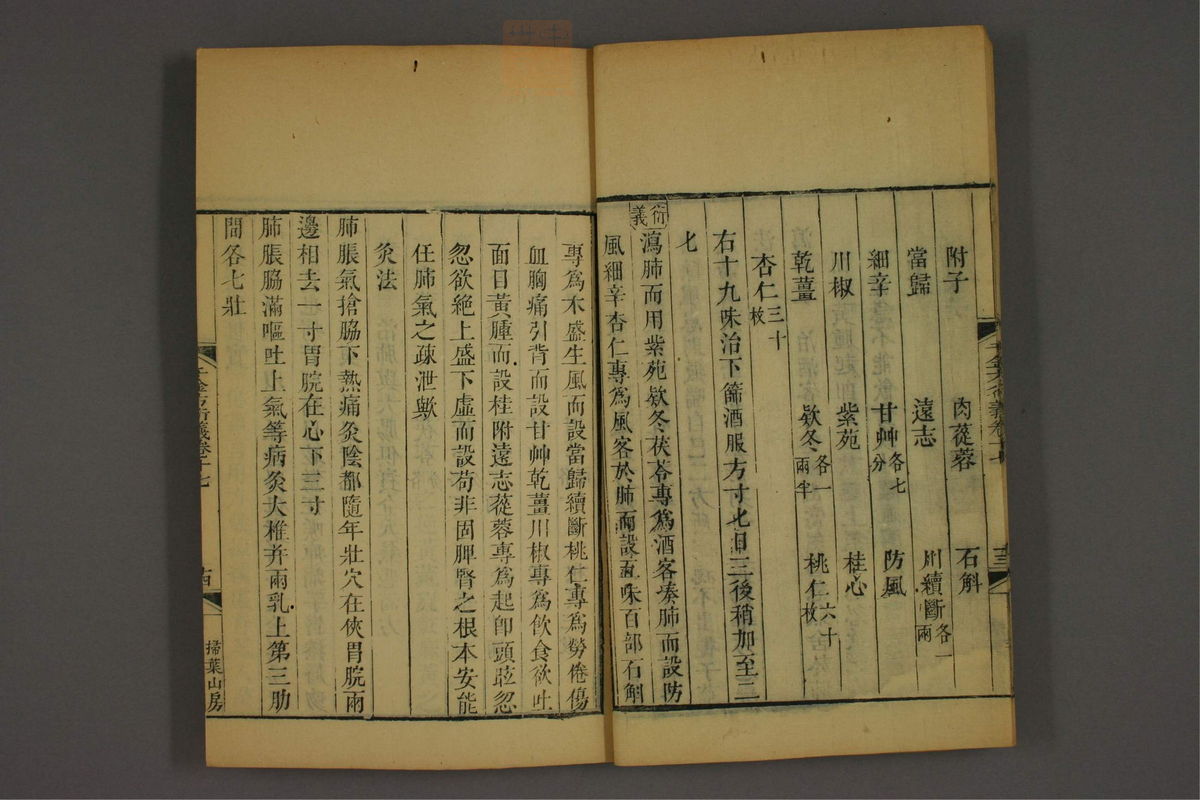 附子 肉蓯蓉 石斛
當歸 遠志 川續斷各一兩
細辛 甘艸各七分 防風
川椒 紫菀 桂心
乾薑 欵冬各一兩半 桃仁六十枚
杏仁三十枚
右十九味治下篩酒服方寸匕日三後稍加至三
七
衍義
瀉肺而用紫菀欵冬茯苓專爲酒客湊肺而設防
風細辛杏仁專爲風客於肺而設五味百部石斛
專爲木盛生風而設當歸續斷桃仁專爲勞倦傷
血胸痛引背而設甘艸乾薑川椒專爲飲食欲吐
面目黃腫而設桂附遠志蓯蓉專爲起卽頭眩忽
忽欲絶上盛下虛而設苟非固脾腎之根本安能
任肺氣之疎泄歟
灸法
肺脹氣搶脇下熱痛灸陰都隨年壯穴在俠胃脘兩
邊相去一寸胃脘在心下三寸
肺脹脇滿嘔吐上氣等病灸大椎并兩乳上第三肋
間各七壯
千金方衍義卷十七
十四
掃葉山房